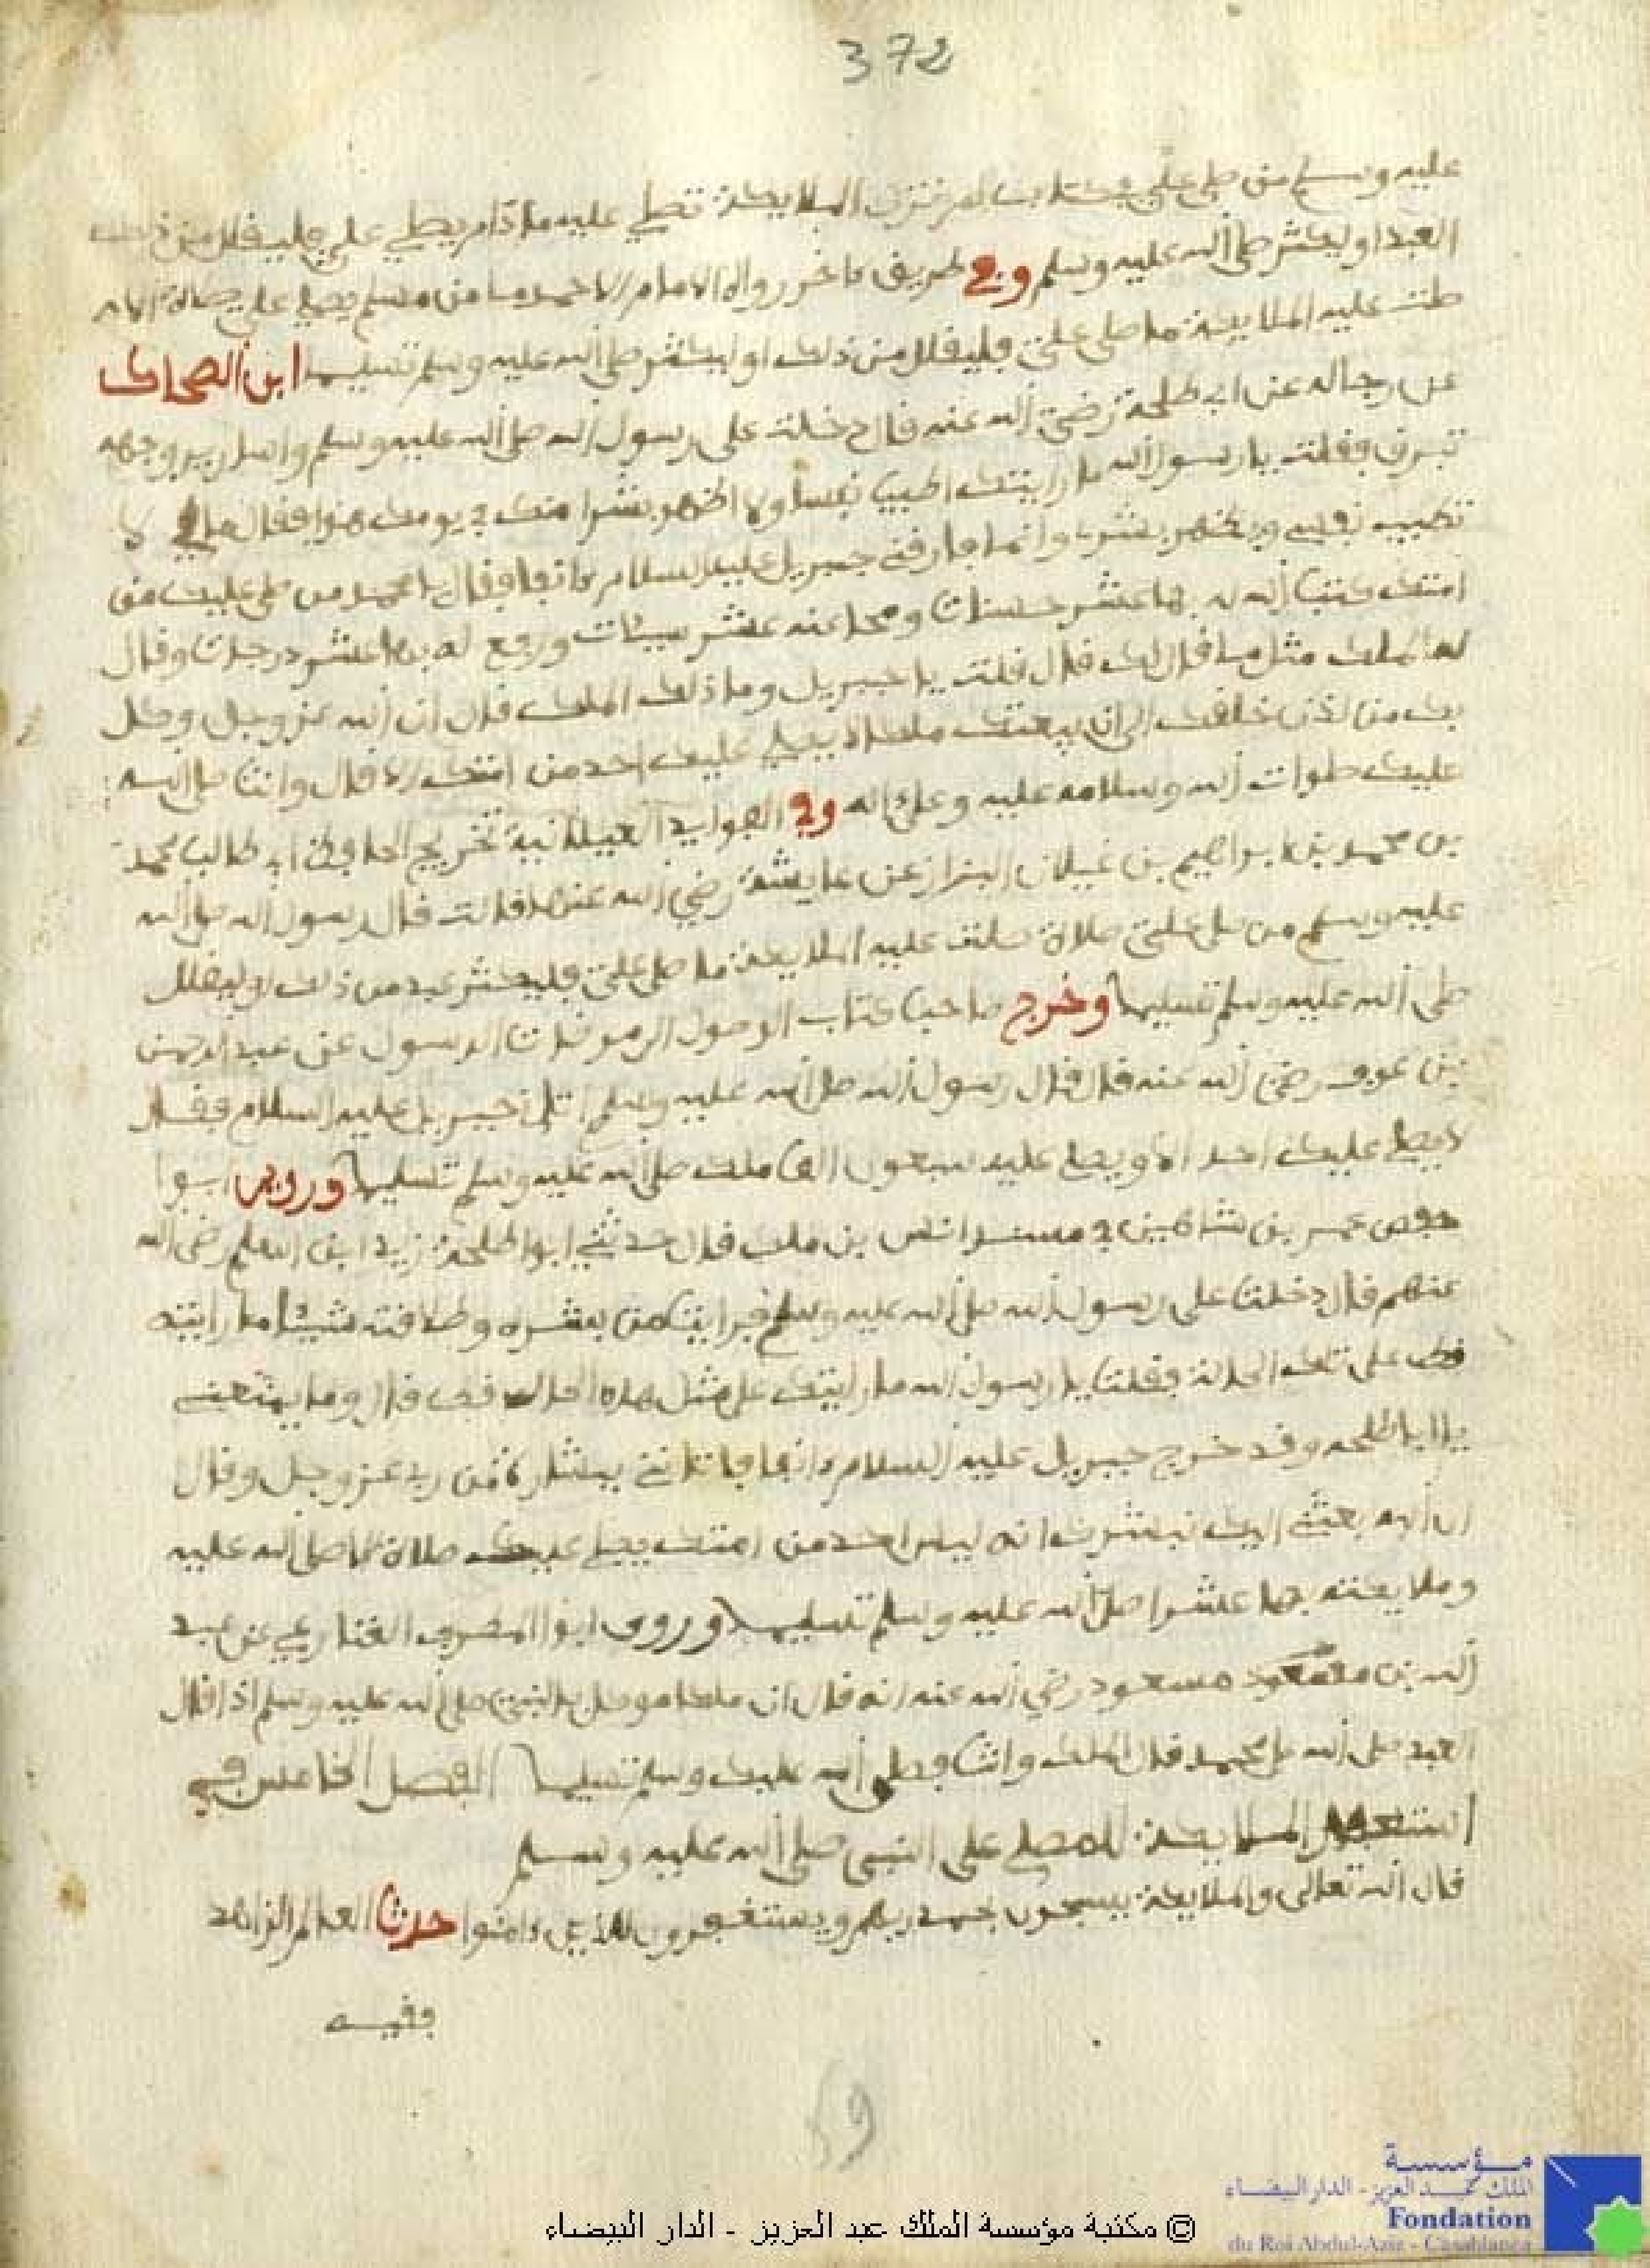 372
عليه وسلم من صلى علي في كتاب لم تزل الملايكة تصلي عليه ما دام يصلي علي فليقلل من ذلك
العبد او ليكثر صلى الله عليه وسلم وفي طريق ءاخر رواه الامام احمد ما من مسلم يصلي علي صلاة الا
صلت عليه الملايكة ما صلى علي فليقلل من ذلك او ليكثر صلى الله عليه وسلم تسليما ابن الضحاك
عن رجاله عن ابي طلحة رضي الله عنه قال دخلت على رسول الله صلى الله عليه وسلم واسارير وجهه
تبرق فقلت يا رسول الله ما رايتك اطيب نفسا ولا اظهر بشرا منك في يومك هذا فقال مالي لا
تطيب نفسي ويظهر بشري وانما فارقني جبريل عليه السلام ءانفا فقال يا محمد من صلى عليك من
امتك كتب الله له بها عشر حسنات ومحا عنه عشر سيئات ورفع له بها عشر درجات وقال
له الملك مثل ما قال لك قال قلت يا جبريل وما ذلك الملك قال ان الله عز وجل وكل
بك من لدن خلقك الى ان يبعثك ملكا لا يصلي عليك احد من امتك الا قال وانت صلى الله
عليك صلوات الله وسلامه عليه وعلى اله وفي الفوايد الغيلانية تخريج الحافظ ابي طالب محمد
بن محمد بن ابراهيم بن غيلان البزاز عن عايشة رضي الله عنها قالت قال رسول الله صلى الله
عليه وسلم من صلى علي صلاة صلت عليه الملايكة ما صلى علي فليكثر عبد من ذلك او ليقلل
صلى الله عليه وسلم تسليما وخرج صاحب كتاب الوصول الى مرضات الرسول عن عبد الرحمن
بن عوف رضي الله عنه قال قال رسول الله صلى الله عليه وسلم اتاني جبريل عليه السلام فقال
لا يصلي عليك احد الا ويصلي عليه سبعون الف ملك صلى الله عليه وسلم تسليما وروى ابوا
حفص عمر بن شاهين في مسند انس بن ملك قال حدثني ابوا طلحة زيد ابن اسلم رضي الله
عنهم قال دخلت على رسول الله صلى الله عليه وسلم فرايت من بشره وطلاقته شيئا ما رايته
قط على تلك الحالة فقلت يا رسول الله ما رايتك على مثل هذه الحال قط قال وما يمنعني
يا ابا طلحه وقد خرج جبريل عليه السلام ءانفا فاتاني ببشارة من ربي عز وجل وقال
ان الله بعثني اليك نبشرك انه ليس احد من امتك يصلي عليك صلاة الا صلى الله عليه
وملايكته بها عشرا صلى الله عليه وسلم تسليما وروى ابوا المطرف القنازعي عن عبد
الله بن مسعود رضي الله عنه انه قال ان ملكا موكل بالنبي صلى الله عليه وسلم اذا قال
العبد صلى الله على محمد قال الملك وانت فصلى الله عليك وسلم تسليما الفصل الخامس في
استغفار الملايكة للمصلي على النبي صلى الله عليه وسلم
قال الله تعالى والملايكة يسبحون بحمد ربهم ويستغفرون للذين ءامنوا حدثنا العالم الزاهد
فقيه
69
© مكتبة مؤسسة الملك عبد العزيز - الدار البيضاء
مؤسسة
الملك عبد العزيز - الدار البيضاء
Fondation
du Roi Abdul-Aziz - Casablanca